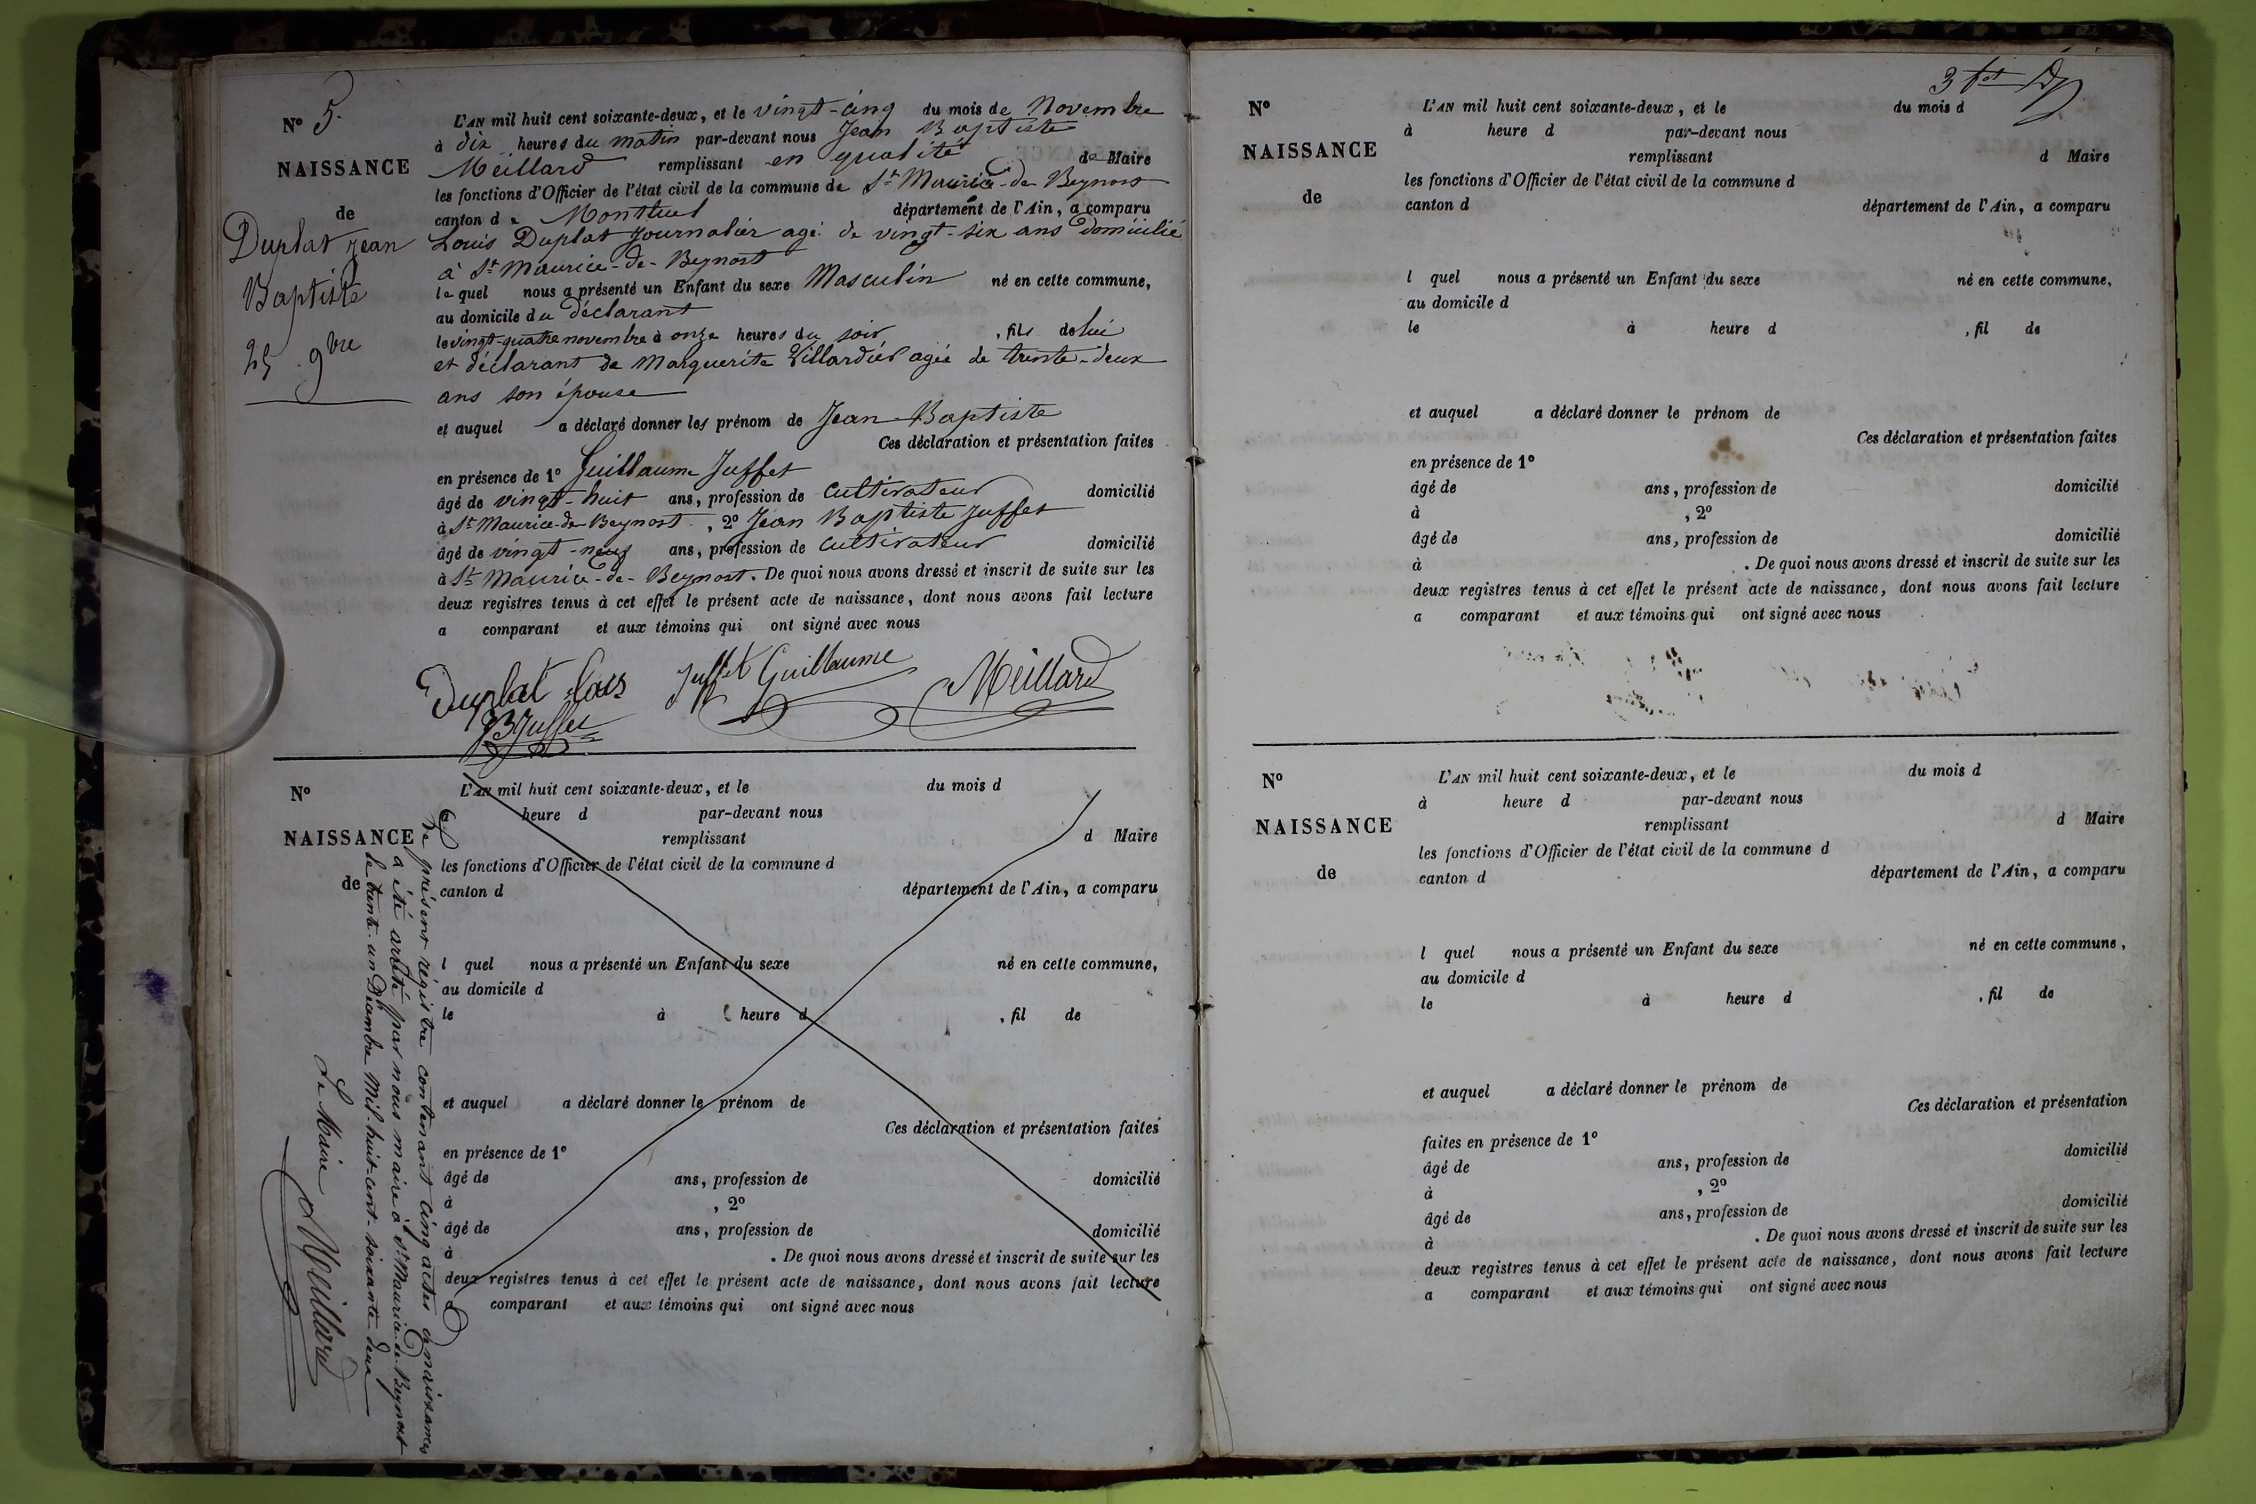 N° 5.
NAISSANCE
de
Duplat Jean
Baptiste
25 9bre
L'AN mil huit cent soixante-deux, et le vingt-cinq du mois de Novembre
à dix heures du matin par-devant nous Jean Baptiste
Meillard remplissant en qualité de Maire
les fonctions d'Officier de l'état civil de la commune de St Maurice-de-Beynost
canton de Montluel département de l'Ain, a comparu
Louis Duplat Journalier agé de vingt-six ans domicilié
à St Maurice-de-Beynost
lequel nous a présenté un Enfant du sexe Masculin né en cette commune,
au domicile du déclarant
le vingt-quatre novembre à onze heures du soir, fils de lui
et déclarant de Marguerite Villardier agée de trente-deux
ans son épouse
et auquel a déclaré donner les prénom de Jean-Baptiste
Ces déclaration et présentation faites
en présence de 1° Guillaume Juffet
âgé de vingt-huit ans, profession de Cultivateur domicilié
à St Maurice-de-Beynost, 2° Jean Baptiste Juffet
âgé de vingt-neuf ans, profession de Cultivateur domicilié
à St Maurice-de-Beynost. De quoi nous avons dressé et inscrit de suite sur les
deux registres tenus à cet effet le présent acte de naissance, dont nous avons fait lecture
a comparant et aux témoins qui ont signé avec nous
Duplat Juffet Guillaume Meillard
JB Juffet
N°
NAISSANCE
de
L'AN mil huit cent soixante-deux, et le du mois d
heure d par-devant nous
remplissant d Maire
les fonctions d'Officier de l'état civil de la commune d
canton d département de l'Ain, a comparu
l quel nous a présenté un Enfant du sexe né en cette commune,
au domicile d
le à heure d , fil de
et auquel a déclaré donner le prénom de
Ces déclaration et présentation faites
en présence de 1°
âgé de ans, profession de domicilié
à , 2°
âgé de ans, profession de domicilié
à . De quoi nous avons dressé et inscrit de suite sur les
deux registres tenus à cet effet le présent acte de naissance, dont nous avons fait lecture
a comparant et aux témoins qui ont signé avec nous
Le présent régistre contenant cinq actes de naissances
a été arrêté par nous maire à St Maurice-de-Beynost
le trente-un Décembre Mil-huit-cent-soixante-deux
Le Maire Meillard
N°
NAISSANCE
de
L'AN mil huit cent soixante-deux, et le du mois d
à heure d par-devant nous
remplissant d Maire
les fonctions d'Officier de l'état civil de la commune d
canton d département de l'Ain, a comparu
l quel nous a présenté un Enfant du sexe né en cette commune,
au domicile d
le à heure d , fil de
et auquel a déclaré donner le prénom de
Ces déclaration et présentation faites
en présence de 1°
âgé de ans, profession de domicilié
à , 2°
âgé de ans, profession de domicilié
à . De quoi nous avons dressé et inscrit de suite sur les
deux registres tenus à cet effet le présent acte de naissance, dont nous avons fait lecture
a comparant et aux témoins qui ont signé avec nous
N°
NAISSANCE
de
L'AN mil huit cent soixante-deux, et le du mois d
à heure d par-devant nous
remplissant d Maire
les fonctions d'Officier de l'état civil de la commune d
canton d département de l'Ain, a comparu
l quel nous a présenté un Enfant du sexe né en cette commune,
au domicile d
le à heure d , fil de
et auquel a déclaré donner le prénom de
Ces déclaration et présentation
faites en présence de 1°
âgé de ans, profession de domicilié
à , 2°
âgé de ans, profession de domicilié
à . De quoi nous avons dressé et inscrit de suite sur les
deux registres tenus à cet effet le présent acte de naissance, dont nous avons fait lecture
a comparant et aux témoins qui ont signé avec nous